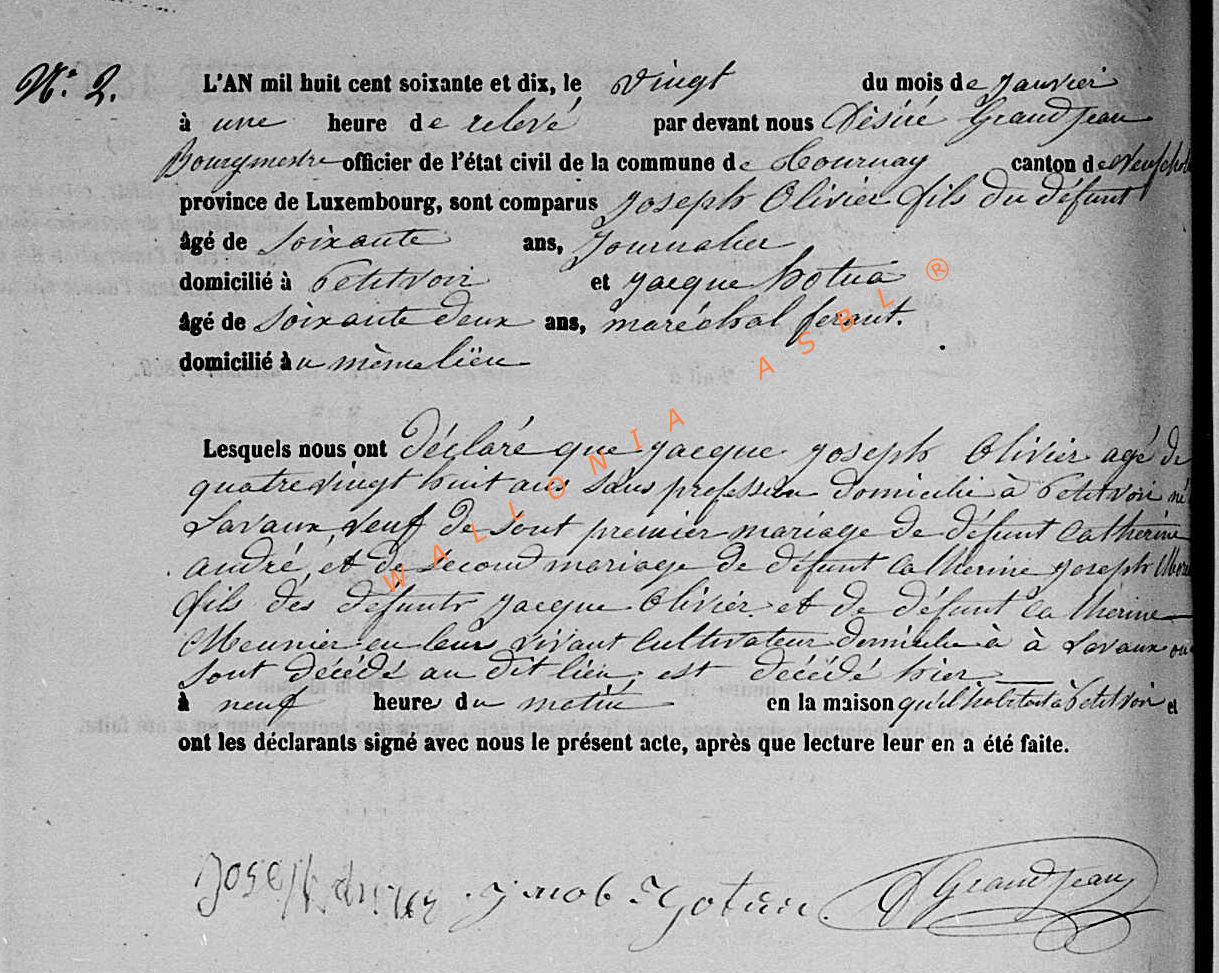 N.º 2.
L'AN mil huit cent soixante et dix, le vingt du mois de janvier
à une heure de relevé par devant nous Désiré Grandjean
Bourgmestre officier de l'état civil de la commune de Tournay canton de Neufchat
province de Luxembourg, sont comparus Joseph Olivier fils du défunt
âgé de soixante ans, Journalier
domicilié à Petitvoir et Jacque
âgé de soixante deux ans, maréchal ferant.
domicilié àu même lieu
Lesquels nous ont déclaré que Jacque Joseph Olivier agé de
quatrevingt huit ans sans profession domicilié à Petitvoir né
Lavaux, veuf de sont premier mariage de défunt Catherine
andré, et de second mariage de défunt Catherine Joseph
fils des défunts Jacque Olivier et de défunt Catherine
Meunier en leur vivant Cultivateur domicilié à à Lavaux ou
sont décédé au dit lieu, est décédé hier
à neuf heure du matin en la maison qu'il habitait à Petitvoir et
ont les déclarants signé avec nous le présent acte, après que lecture leur en a été faite.
Joseph D Grandjean
WALLONIA ASBL ®